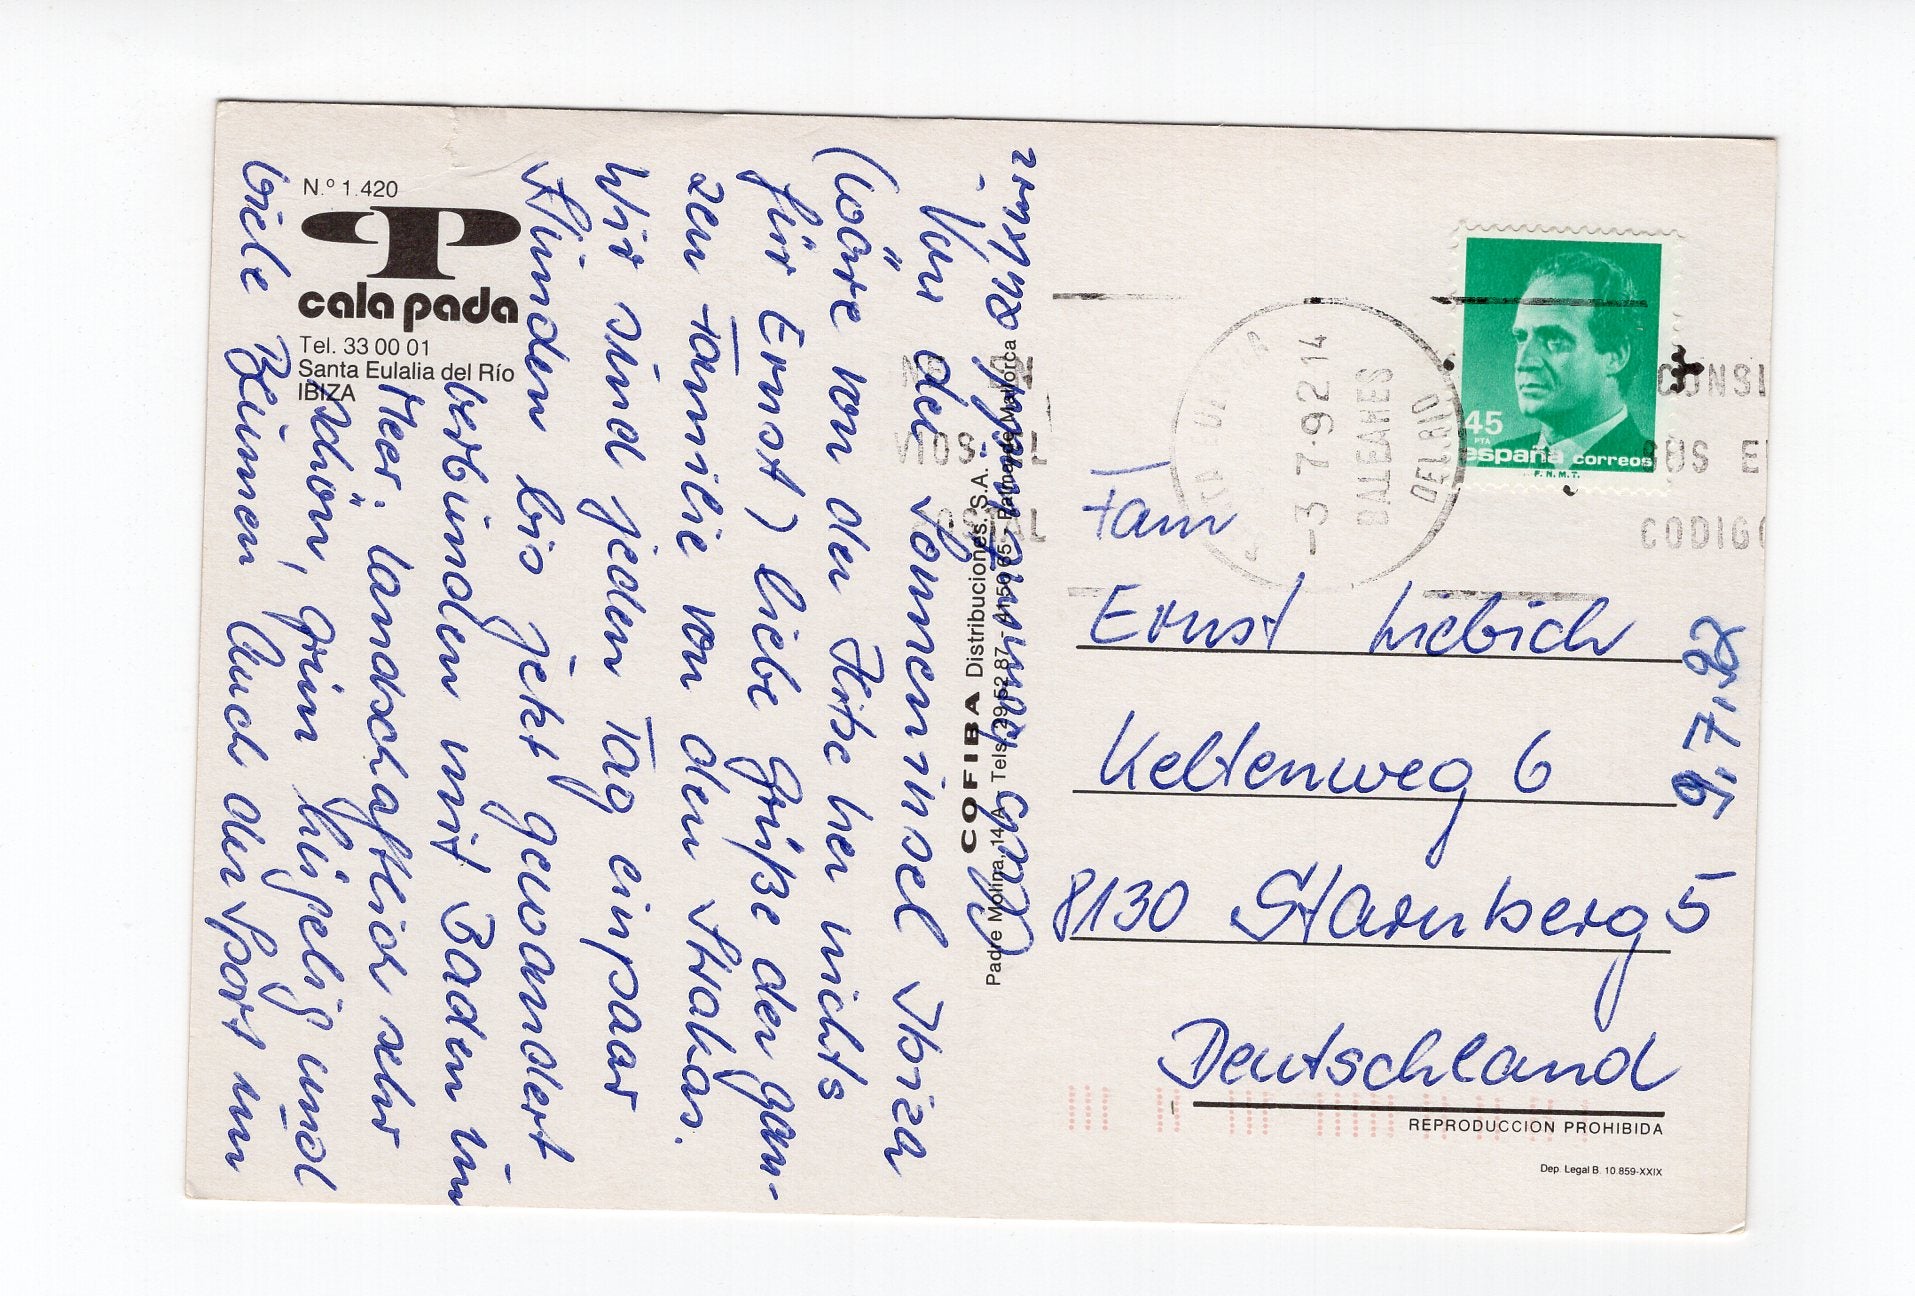 N.º 1.420
cala pada
Tel. 33 00 01
Santa Eulalia del Río
IBIZA
Von der Sonneninsel Ibiza
(wäre von der Hitze her nichts
für Ernst) liebe Grüße der gan-
zen Familie von den Strakas.
Wir sind jeden Tag ein paar
Stunden bis jetzt gewandert
verbunden mit Baden im
Meer. Landschaftlich sehr
schön, grün hügelig und
viele Blumen Auch der Sport im
COFIBA Distribuciones, S.A.
Padre Molina, 14 A - Tels. 29 52 87 - 41 59 65 - Palma de Mallorca
-3.7-92 14
BALEARES
DEL RIO
CONSI
SUS E
CODIGO
45
PTA
españa correos
F.N.M.T.
Fam
Ernst Liebich
Keltenweg 6
8130 Starnberg 5
Deutschland
9.7.92
REPRODUCCION PROHIBIDA
Dep. Legal B. 10.859-XXIX